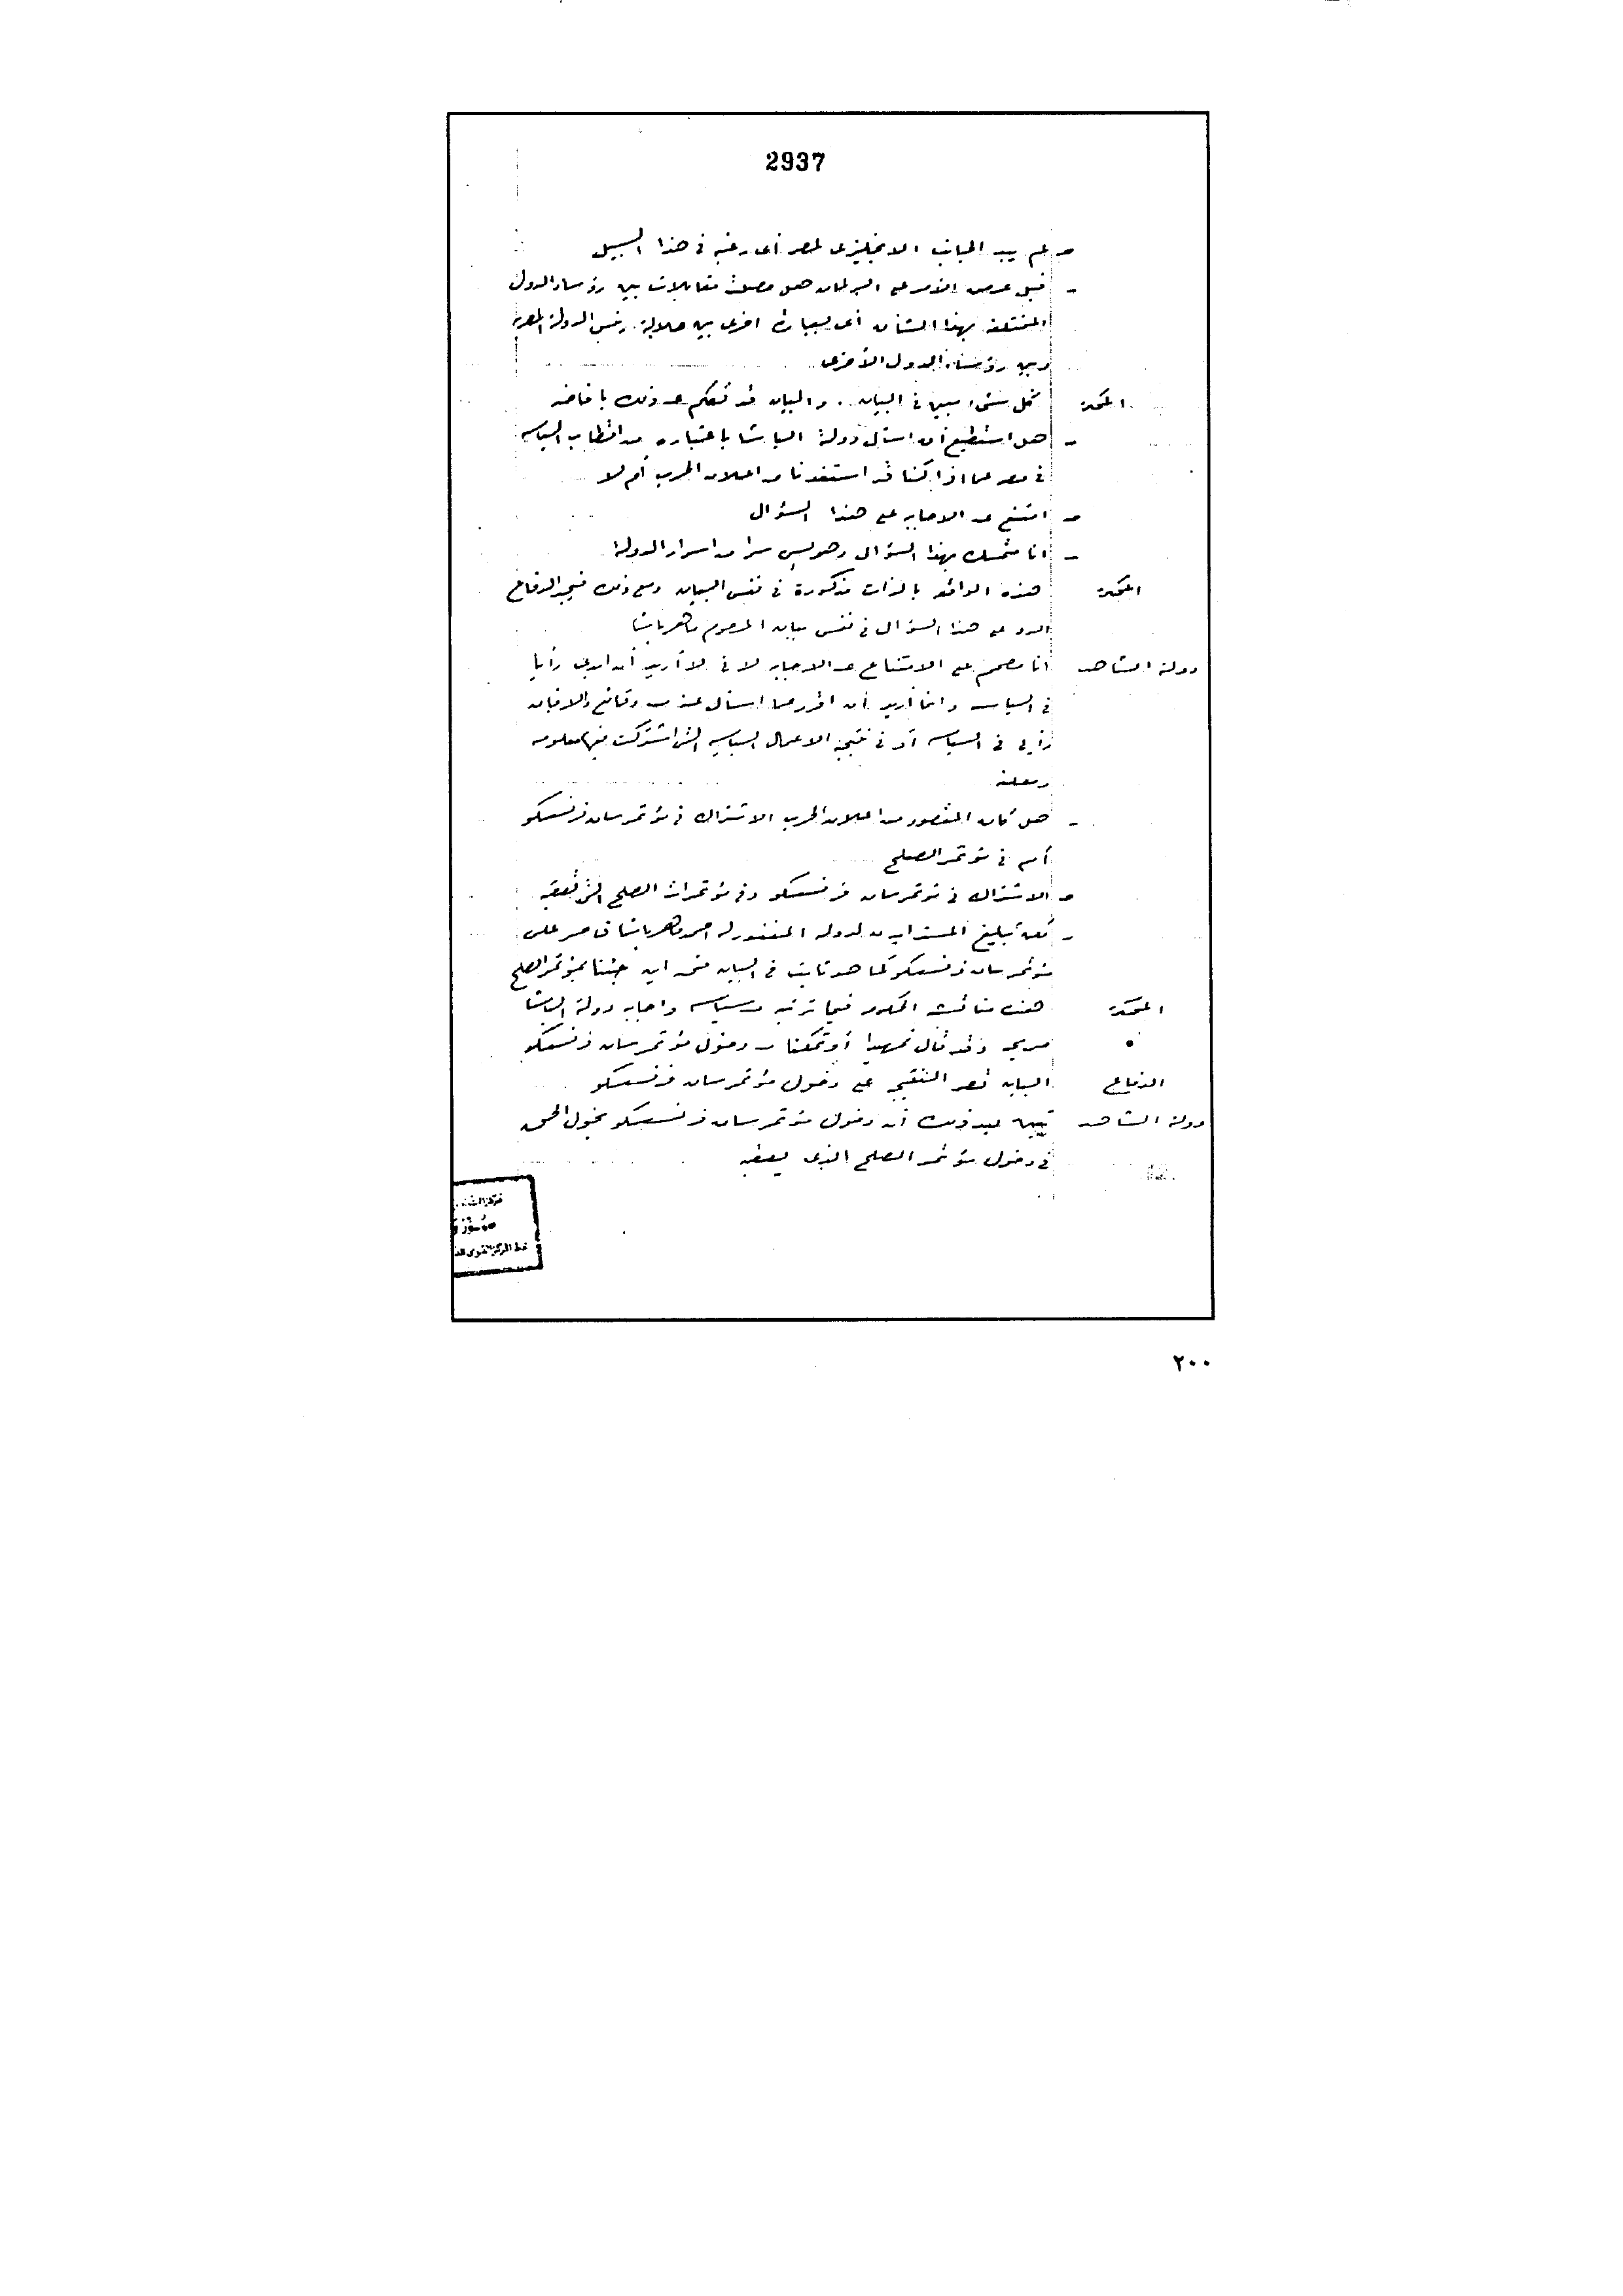 2937
ـ لم يبد الجانب الانجليزى لمصر أى رغبه فى هذا السبيل
ـ قبل عرض الأمر على البرلمان هل حصلت مقابلات بين رؤساء الدول
المختلفة بهذا الشأن أى بعبارة اخرى بين جلالة رئيس الدولة المصرية
وبين رؤساء الدول الأخرى
المحكمة كل شىء مبين فى البيان . والبيان قد تكلم عن ذلك بافاضه
ـ هل استطيع أن اسأل دولة الباشا باعتباره من اقطاب السياسه
فى مصر عما اذا كنا قد استفدنا من اعلان الحرب أم لا
ـ امتنع عن الاجابه على هذا السؤال
ـ انا متمسك بهذا السؤال وهو ليس سرا من اسرار الدولة
المحكمة هذه الوقائع بالذات مذكورة فى نفس البيان ومع ذلك فيجد الدفاع
الرد على هذا السؤال فى نفس بيان المرحوم ماهر باشا
دولة الشاهد انا مصمم على الامتناع عن الاجابه لانى لا أريد أن ابدى رأيا
فى السياسه وانما أريد أن اقرر عما اسأل عنه من وقائع والا فان
رأيى فى السياسه أو فى نتيجة الاعمال السياسيه التى اشتركت فيها معلومه
ومعلنه
ـ هل كان المقصود من اعلان الحرب الاشتراك فى مؤتمر سان فرنسسكو
أم فى مؤتمر الصلح
ـ الاشتراك فى مؤتمر سان فرنسسكو وفى مؤتمرات الصلح التى تعقبه
ـ تبليغ المستر ايدن لدولة المغفور له احمد ماهر باشا قاصر على
مؤتمر سان فرنسسكو كما هو ثابت فى البيان فمن اين جئنا بمؤتمر الصلح
المحكمة هذه مناقشه فيما ترتبه من سياسه واجابه دولة الباشا
صريحه وقد قال تمهيدا أو تمكنا من دخول مؤتمر سان فرنسسكو
الدفاع البيان قصر النتيجه على دخول مؤتمر سان فرنسسكو
دولة الشاهد تبين بعد ذلك أن دخول مؤتمر سان فرنسسكو يخول الحق
فى دخول مؤتمر الصلح الذى يعقبه
٢٠٠